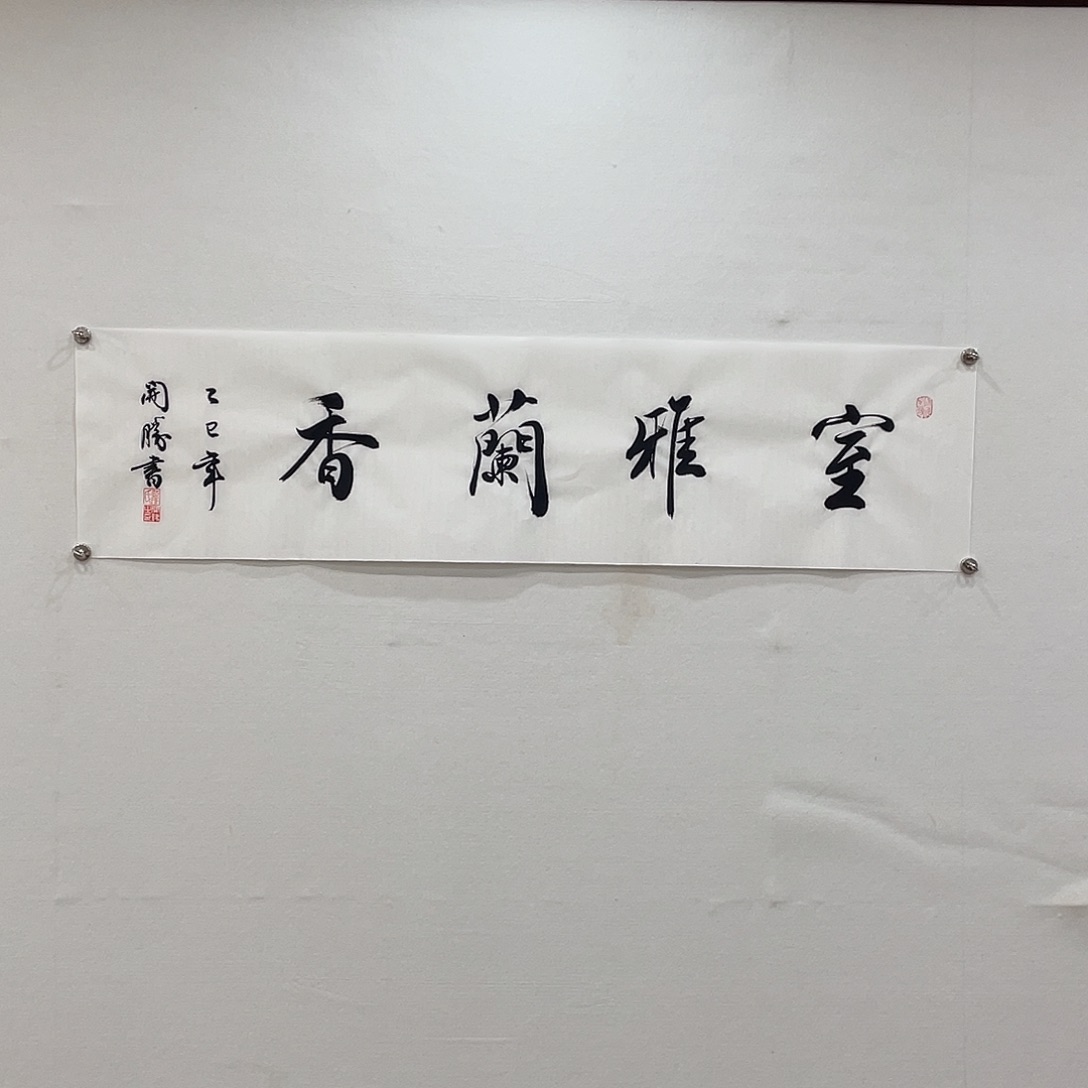 室雅蘭香
乙巳年
開勝書